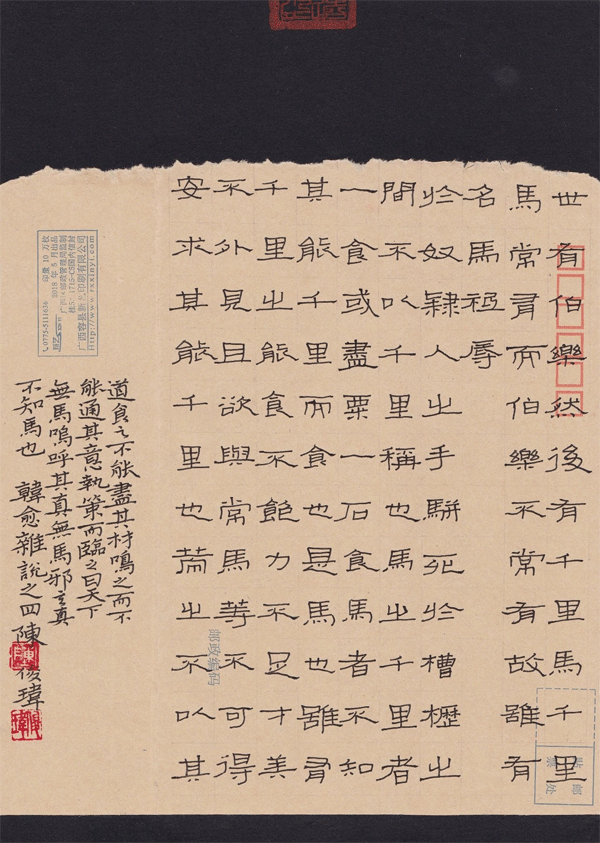 世有伯樂然後有千里馬千里
馬常有而伯樂不常有故雖有
名馬祗辱
於奴隸人之手駢死於槽櫪之
間不以千里稱也馬之千里者
一食或盡粟一石食馬者不知
其能千里而食也是馬也雖有
千里之能食不飽力不足才美
不外見且欲與常馬等不可得
安求其能千里也策之不以其
道食之不能盡其材鳴之而不
能通其意執策而臨之曰天下
無馬嗚呼其真無馬邪亓真
不知馬也 韓愈雜說之四 陳俊瑋
邮政编码
Http://www.rxxinyi.com
印刷有限公司
国内信封
2018 年 5 月出品
0775-5111636 印量 10 万枚